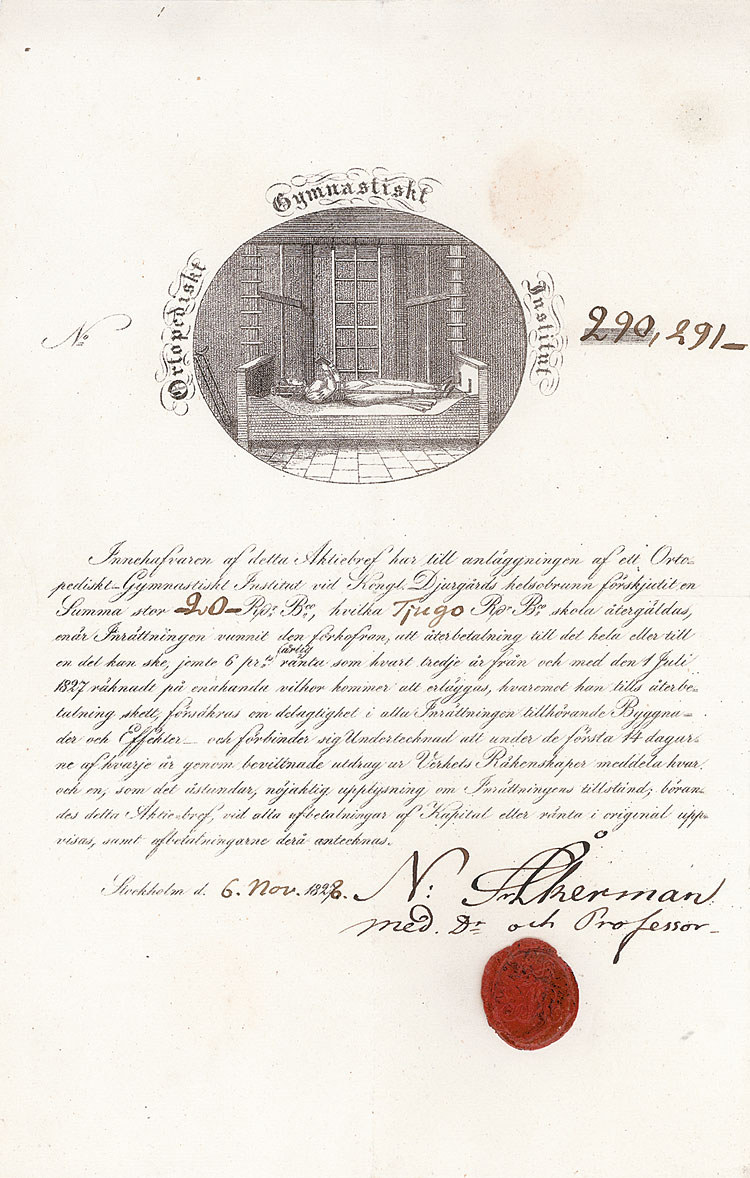 Gymnastiskt
Ortopediskt
Institut
No
290, 291_
Innehafvaren af detta Aktiebref har till anläggningen af ett Orto-
pediskt-Gymnastiskt Institut vid Kongl. Djurgårds helsobrunn förskjutit en
Summa stor 20_ Rdr. Bco, hvilka Tjugo Rdr Bco skola återgäldas,
enär Inrättningen vunnit den förkofran, att återbetalning till det hela eller till
en del kan ske, jemte 6 pr.ct årlig ränta som hvart tredje år från och med den 1 Juli
1827 räknadt på enahanda vilkor kommer att erläggas, hvaremot han tills återbe-
talning skett, försäkras om delagtighet i alla Inrättningen tillhörande Byggna-
der och Effekter_ och förbinder sig Undertecknad att under de första 14 dagar-
ne af hvarje år genom bevittnade utdrag ur Verkets Räkenskaper meddela hvar
och en, som det åstundar, nöjaktig upplysning om Inrättningens tillstånd; böran-
des detta Aktie-bref, vid alla afbetalningar af Kapital eller ränta i original upp-
visas, samt afbetalningarne derå antecknas.
Stockholm d. 6. Nov. 1828. N: Åkerman
med. Dr och Professor_